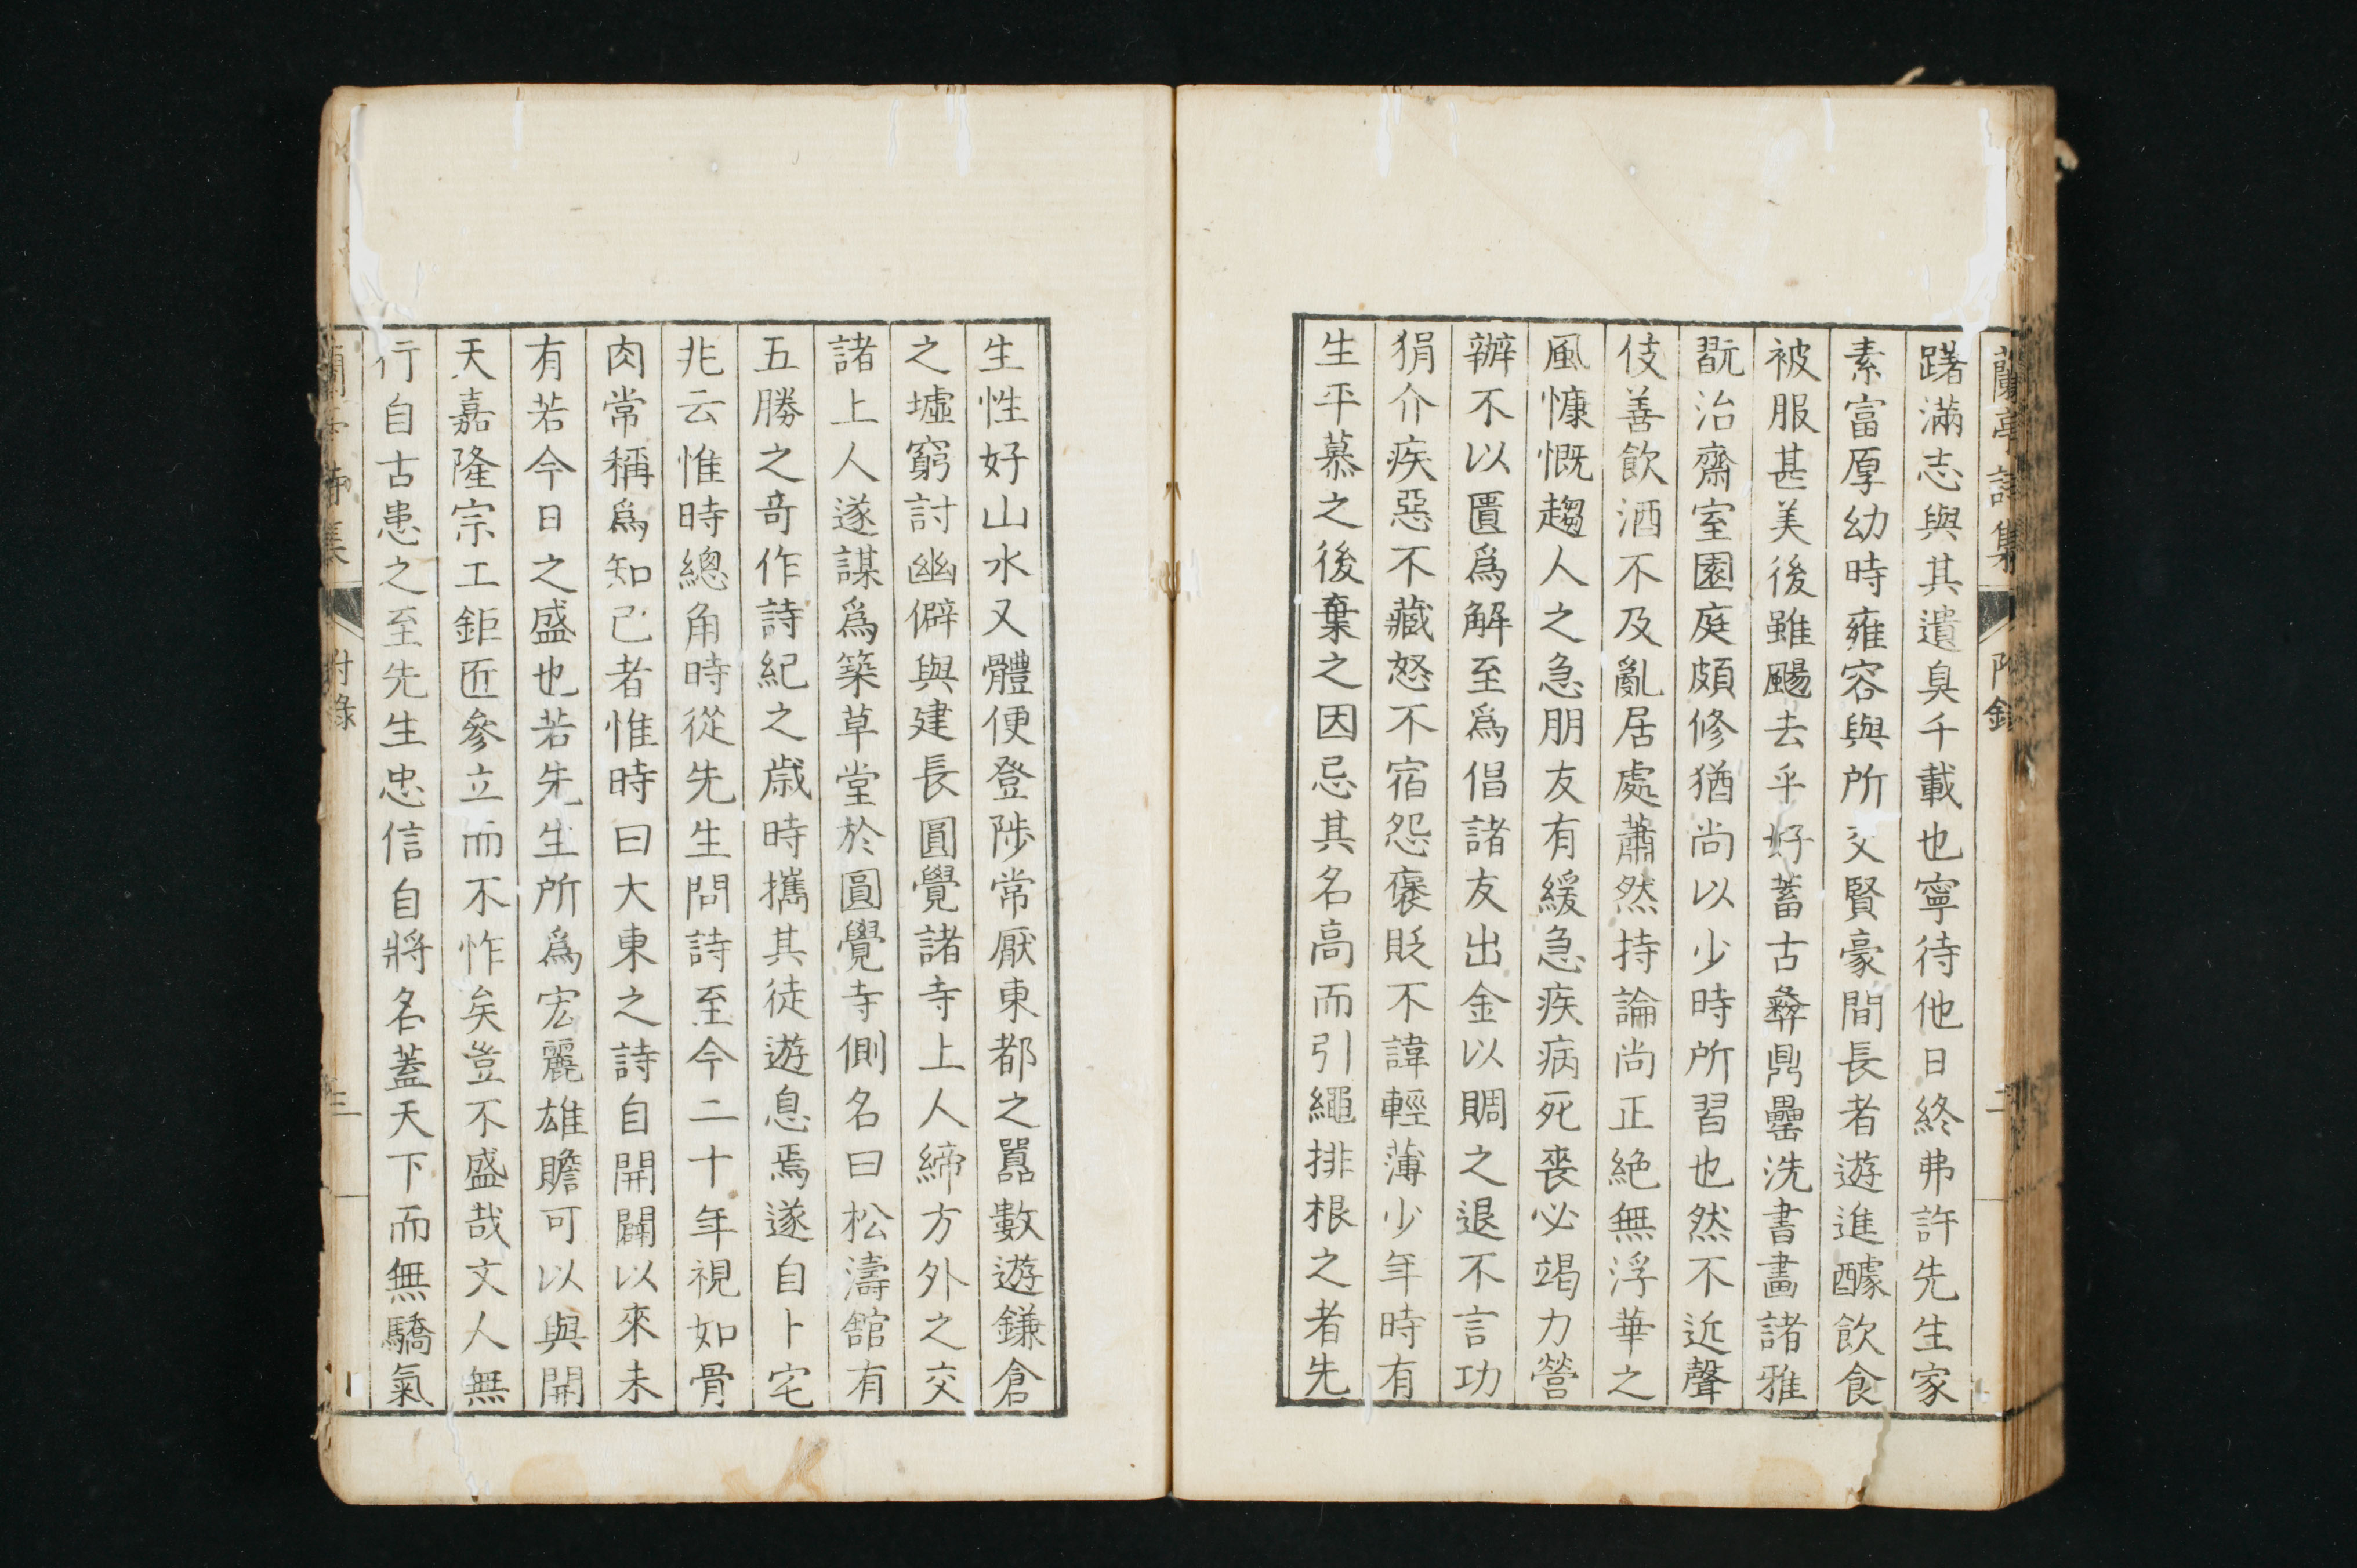 蘭亭詩集 附錄 二
躇滿志與其遺臭千載也寧待他日終弗許先生家
素富厚幼時雍容與所交賢豪間長者遊進醵飲食
被服甚美後雖颺去乎好蓄古彝鼎罍洗書畫諸雅
翫治齋室園庭頗修猶尚以少時所習也然不近聲
伎善飲酒不及亂居處蕭然持論尚正絶無浮華之
風慷慨趨人之急朋友有緩急疾病死喪必竭力營
辦不以匱爲解至爲倡諸友出金以賙之退不言功
狷介疾惡不藏怒不宿怨褒貶不諱輕薄少年時有
生平慕之後棄之因忌其名高而引繩排根之者先
生性好山水又體便登陟常厭東都之囂數遊鎌倉
之墟窮討幽僻與建長圓覺諸寺上人締方外之交
諸上人遂謀爲築草堂於圓覺寺側名曰松濤館有
五勝之奇作詩紀之歲時攜其徒遊息焉遂自卜宅
兆云惟時總角時從先生問詩至今二十年視如骨
肉常稱爲知己者惟時曰大東之詩自開闢以來未
有若今日之盛也若先生所爲宏麗雄贍可以與開
天嘉隆宗工鉅匠參立而不怍矣豈不盛哉文人無
行自古患之至先生忠信自將名蓋天下而無驕氣
蘭亭詩集 附錄 三